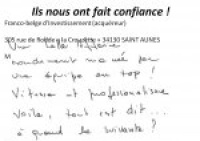 Ils nous ont fait confiance !
Franco-Belge d'Investissement (acquéreur)
305 rue de Rome - la Croisette - 34130 SAINT AUNES
M
Une belle histoire
rondement menée par
une équipe au top !
Vitesse et professionalisme
Voilà, tout est dit...
à quand la suivante ?